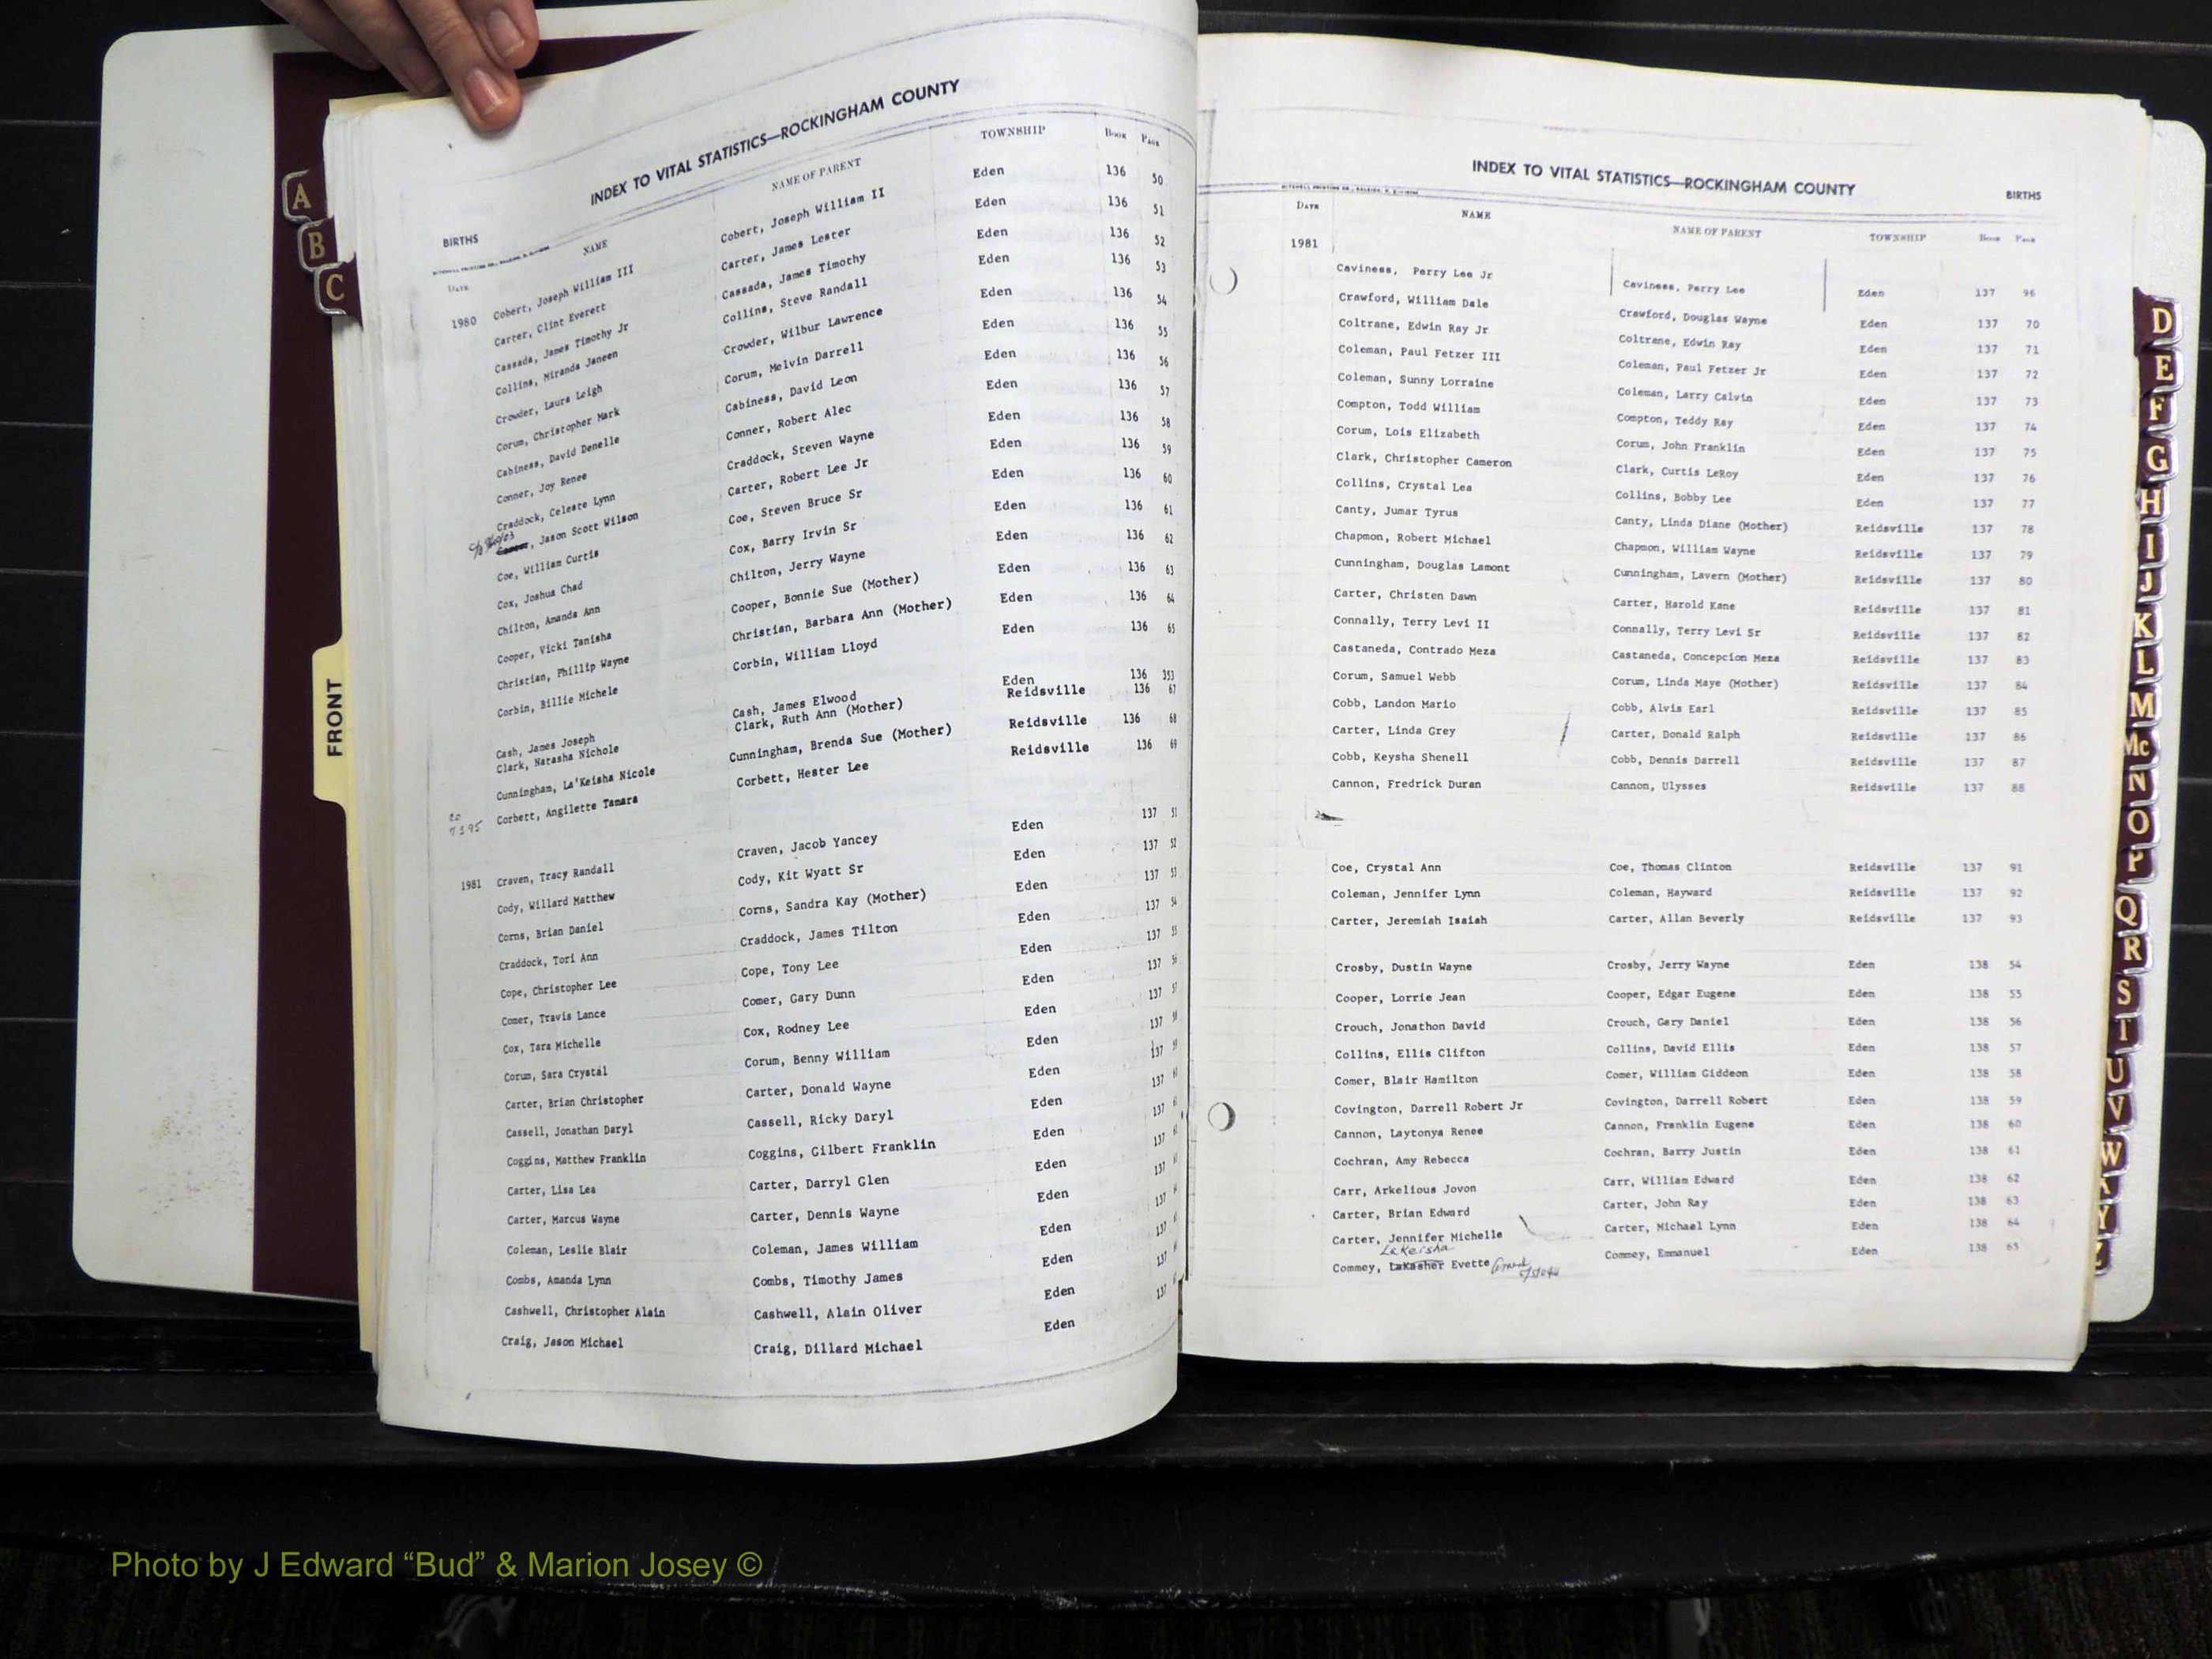 INDEX TO VITAL STATISTICS—ROCKINGHAM COUNTY
BIRTHS
DATE NAME NAME OF PARENT TOWNSHIP BOOK PAGE
1980 Cobert, Joseph William III Cobert, Joseph William II Eden 136 50
Carter, Clint Everett Carter, James Lester Eden 136 51
Cassada, James Timothy Jr Cassada, James Timothy Eden 136 52
Collins, Miranda Janeen Collins, Steve Randall Eden 136 53
Crowder, Laura Leigh Crowder, Wilbur Lawrence Eden 136 54
Corum, Christopher Mark Corum, Melvin Darrell Eden 136 55
Cabiness, David Denelle Cabiness, David Leon Eden 136 56
Conner, Joy Renee Conner, Robert Alec Eden 136 57
Craddock, Celeste Lynn Craddock, Steven Wayne Eden 136 58
, Jason Scott Wilson Carter, Robert Lee Jr Eden 136 59
Coe, William Curtis Coe, Steven Bruce Sr Eden 136 60
Cox, Joshua Chad Cox, Barry Irvin Sr Eden 136 61
Chilton, Amanda Ann Chilton, Jerry Wayne Eden 136 62
Cooper, Vicki Tanisha Cooper, Bonnie Sue (Mother) Eden 136 63
Christian, Phillip Wayne Christian, Barbara Ann (Mother) Eden 136 64
Corbin, Billie Michele Corbin, William Lloyd Eden 136 65
Cash, James Joseph Cash, James Elwood Eden 136 353
Clark, Natasha Nichole Clark, Ruth Ann (Mother) Reidsville 136 67
Cunningham, La'Keisha Nicole Cunningham, Brenda Sue (Mother) Reidsville 136 68
Corbett, Angilette Tamara Corbett, Hester Lee Reidsville 136 69
1981 Craven, Tracy Randall Craven, Jacob Yancey Eden 137 51
Cody, Willard Matthew Cody, Kit Wyatt Sr Eden 137 52
Corns, Brian Daniel Corns, Sandra Kay (Mother) Eden 137 53
Craddock, Tori Ann Craddock, James Tilton Eden 137 54
Cope, Christopher Lee Cope, Tony Lee Eden 137 55
Comer, Travis Lance Comer, Gary Dunn Eden 137
Cox, Tara Michelle Cox, Rodney Lee Eden 137
Corum, Sara Crystal Corum, Benny William Eden 137
Carter, Brian Christopher Carter, Donald Wayne Eden 137
Cassell, Jonathan Daryl Cassell, Ricky Daryl Eden 137
Coggins, Matthew Franklin Coggins, Gilbert Franklin Eden 137
Carter, Lisa Lea Carter, Darryl Glen Eden 137
Carter, Marcus Wayne Carter, Dennis Wayne Eden 137
Coleman, Leslie Blair Coleman, James William Eden 137
Combs, Amanda Lynn Combs, Timothy James Eden 137
Cashwell, Christopher Alain Cashwell, Alain Oliver Eden 137
Craig, Jason Michael Craig, Dillard Michael Eden 137
INDEX TO VITAL STATISTICS—ROCKINGHAM COUNTY
BIRTHS
DATE NAME NAME OF PARENT TOWNSHIP BOOK PAGE
1981
Caviness, Perry Lee Jr Caviness, Perry Lee Eden 137 96
Crawford, William Dale Crawford, Douglas Wayne Eden 137 70
Coltrane, Edwin Ray Jr Coltrane, Edwin Ray Eden 137 71
Coleman, Paul Fetzer III Coleman, Paul Fetzer Jr Eden 137 72
Coleman, Sunny Lorraine Coleman, Larry Calvin Eden 137 73
Compton, Todd William Compton, Teddy Ray Eden 137 74
Corum, Lois Elizabeth Corum, John Franklin Eden 137 75
Clark, Christopher Cameron Clark, Curtis LeRoy Eden 137 76
Collins, Crystal Lea Collins, Bobby Lee Eden 137 77
Canty, Jumar Tyrus Canty, Linda Diane (Mother) Reidsville 137 78
Chapmon, Robert Michael Chapmon, William Wayne Reidsville 137 79
Cunningham, Douglas Lamont Cunningham, Lavern (Mother) Reidsville 137 80
Carter, Christen Dawn Carter, Harold Kane Reidsville 137 81
Connally, Terry Levi II Connally, Terry Levi Sr Reidsville 137 82
Castaneda, Contrado Meza Castaneda, Concepcion Meza Reidsville 137 83
Corum, Samuel Webb Corum, Linda Maye (Mother) Reidsville 137 84
Cobb, Landon Mario Cobb, Alvis Earl Reidsville 137 85
Carter, Linda Grey Carter, Donald Ralph Reidsville 137 86
Cobb, Keysha Shenell Cobb, Dennis Darrell Reidsville 137 87
Cannon, Fredrick Duran Cannon, Ulysses Reidsville 137 88
Coe, Crystal Ann Coe, Thomas Clinton Reidsville 137 91
Coleman, Jennifer Lynn Coleman, Hayward Reidsville 137 92
Carter, Jeremiah Isaiah Carter, Allan Beverly Reidsville 137 93
Crosby, Dustin Wayne Crosby, Jerry Wayne Eden 138 54
Cooper, Lorrie Jean Cooper, Edgar Eugene Eden 138 55
Crouch, Jonathon David Crouch, Gary Daniel Eden 138 56
Collins, Ellis Clifton Collins, David Ellis Eden 138 57
Comer, Blair Hamilton Comer, William Giddeon Eden 138 58
Covington, Darrell Robert Jr Covington, Darrell Robert Eden 138 59
Cannon, Laytonya Renee Cannon, Franklin Eugene Eden 138 60
Cochran, Amy Rebecca Cochran, Barry Justin Eden 138 61
Carr, Arkelious Jovon Carr, William Edward Eden 138 62
Carter, Brian Edward Carter, John Ray Eden 138 63
Carter, Jennifer Michelle Carter, Michael Lynn Eden 138 64
LaKeisha
Commey, LaKasher Evette Commey, Emmanuel Eden 138 65
A
B
C
FRONT
D
E
F
G
H
I
J
K
L
M
Mc
N
O
P
Q
R
S
T
U
V
W
Y
Z
Photo by J Edward “Bud” & Marion Josey ©